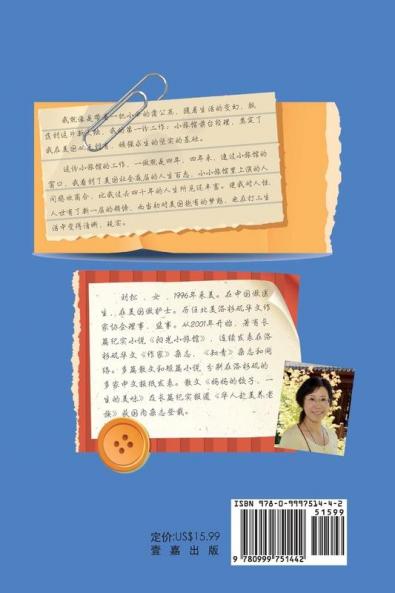 我就像是
小
的蒲公英，随着生活的变幻，飘
落到这片新大陆，我的第一份工作：小旅馆前台经理，奠定了
我在美国
，顽强求生的坚实的基础。
这份小旅馆的工作，一做就是四年，四年来，透过小旅馆的
窗口，我看到了美国社会底层的人生百态，小小旅馆里上演的人
间悲欢离合，比我过去四十年的人生所见还丰富。使我对人性，
人世有了新一层的领悟，而当初对美国抱有的梦想，也在打工生
活中变得清晰，现实。
刘松，女，1996年来美。在中国做医
生，在美国做护士。历任北美洛杉矶华文作
家协会理事，监事。从2001年开始，著有长
篇纪实小说《阳光小旅馆》，连续发表在洛
杉矶华文《作家》杂志，《知青》杂志和网
络。多篇散文和短篇小说分别在洛杉矶的
多家中文报纸发表。散文《妈妈的饺子，一
生的美味》在长篇纪实报道《华人赴美养老
族》被国内杂志登载。
ISBN 978-0-9997514-4-2
51599
定价:US$15.99
壹嘉出版
9 780999 751442